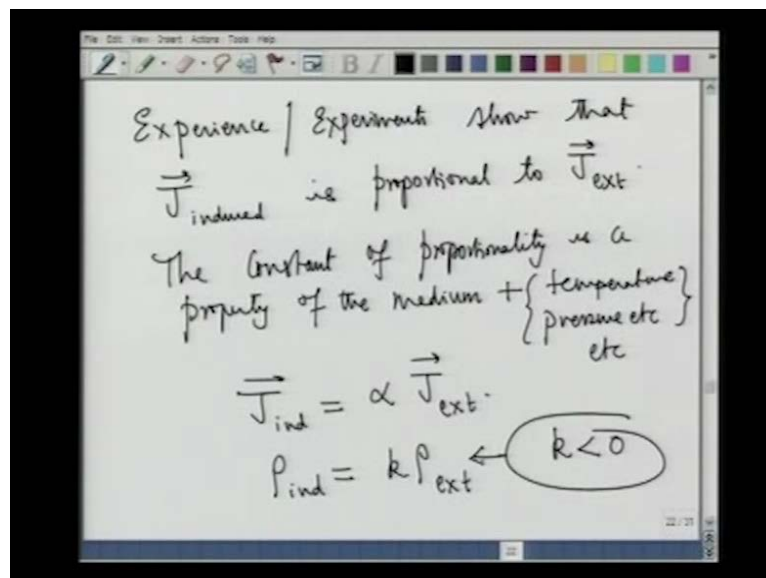 File Edit View Insert Actions Tools Help
Experience / Experiments show that
J⃗ induced is proportional to J⃗ ext.
The Constant of proportionality is a
property of the medium + { temperature
pressure etc }
etc
J⃗ ind = α J⃗ ext.
ρ ind = k ρ ext ← k < 0
22 / 31
22